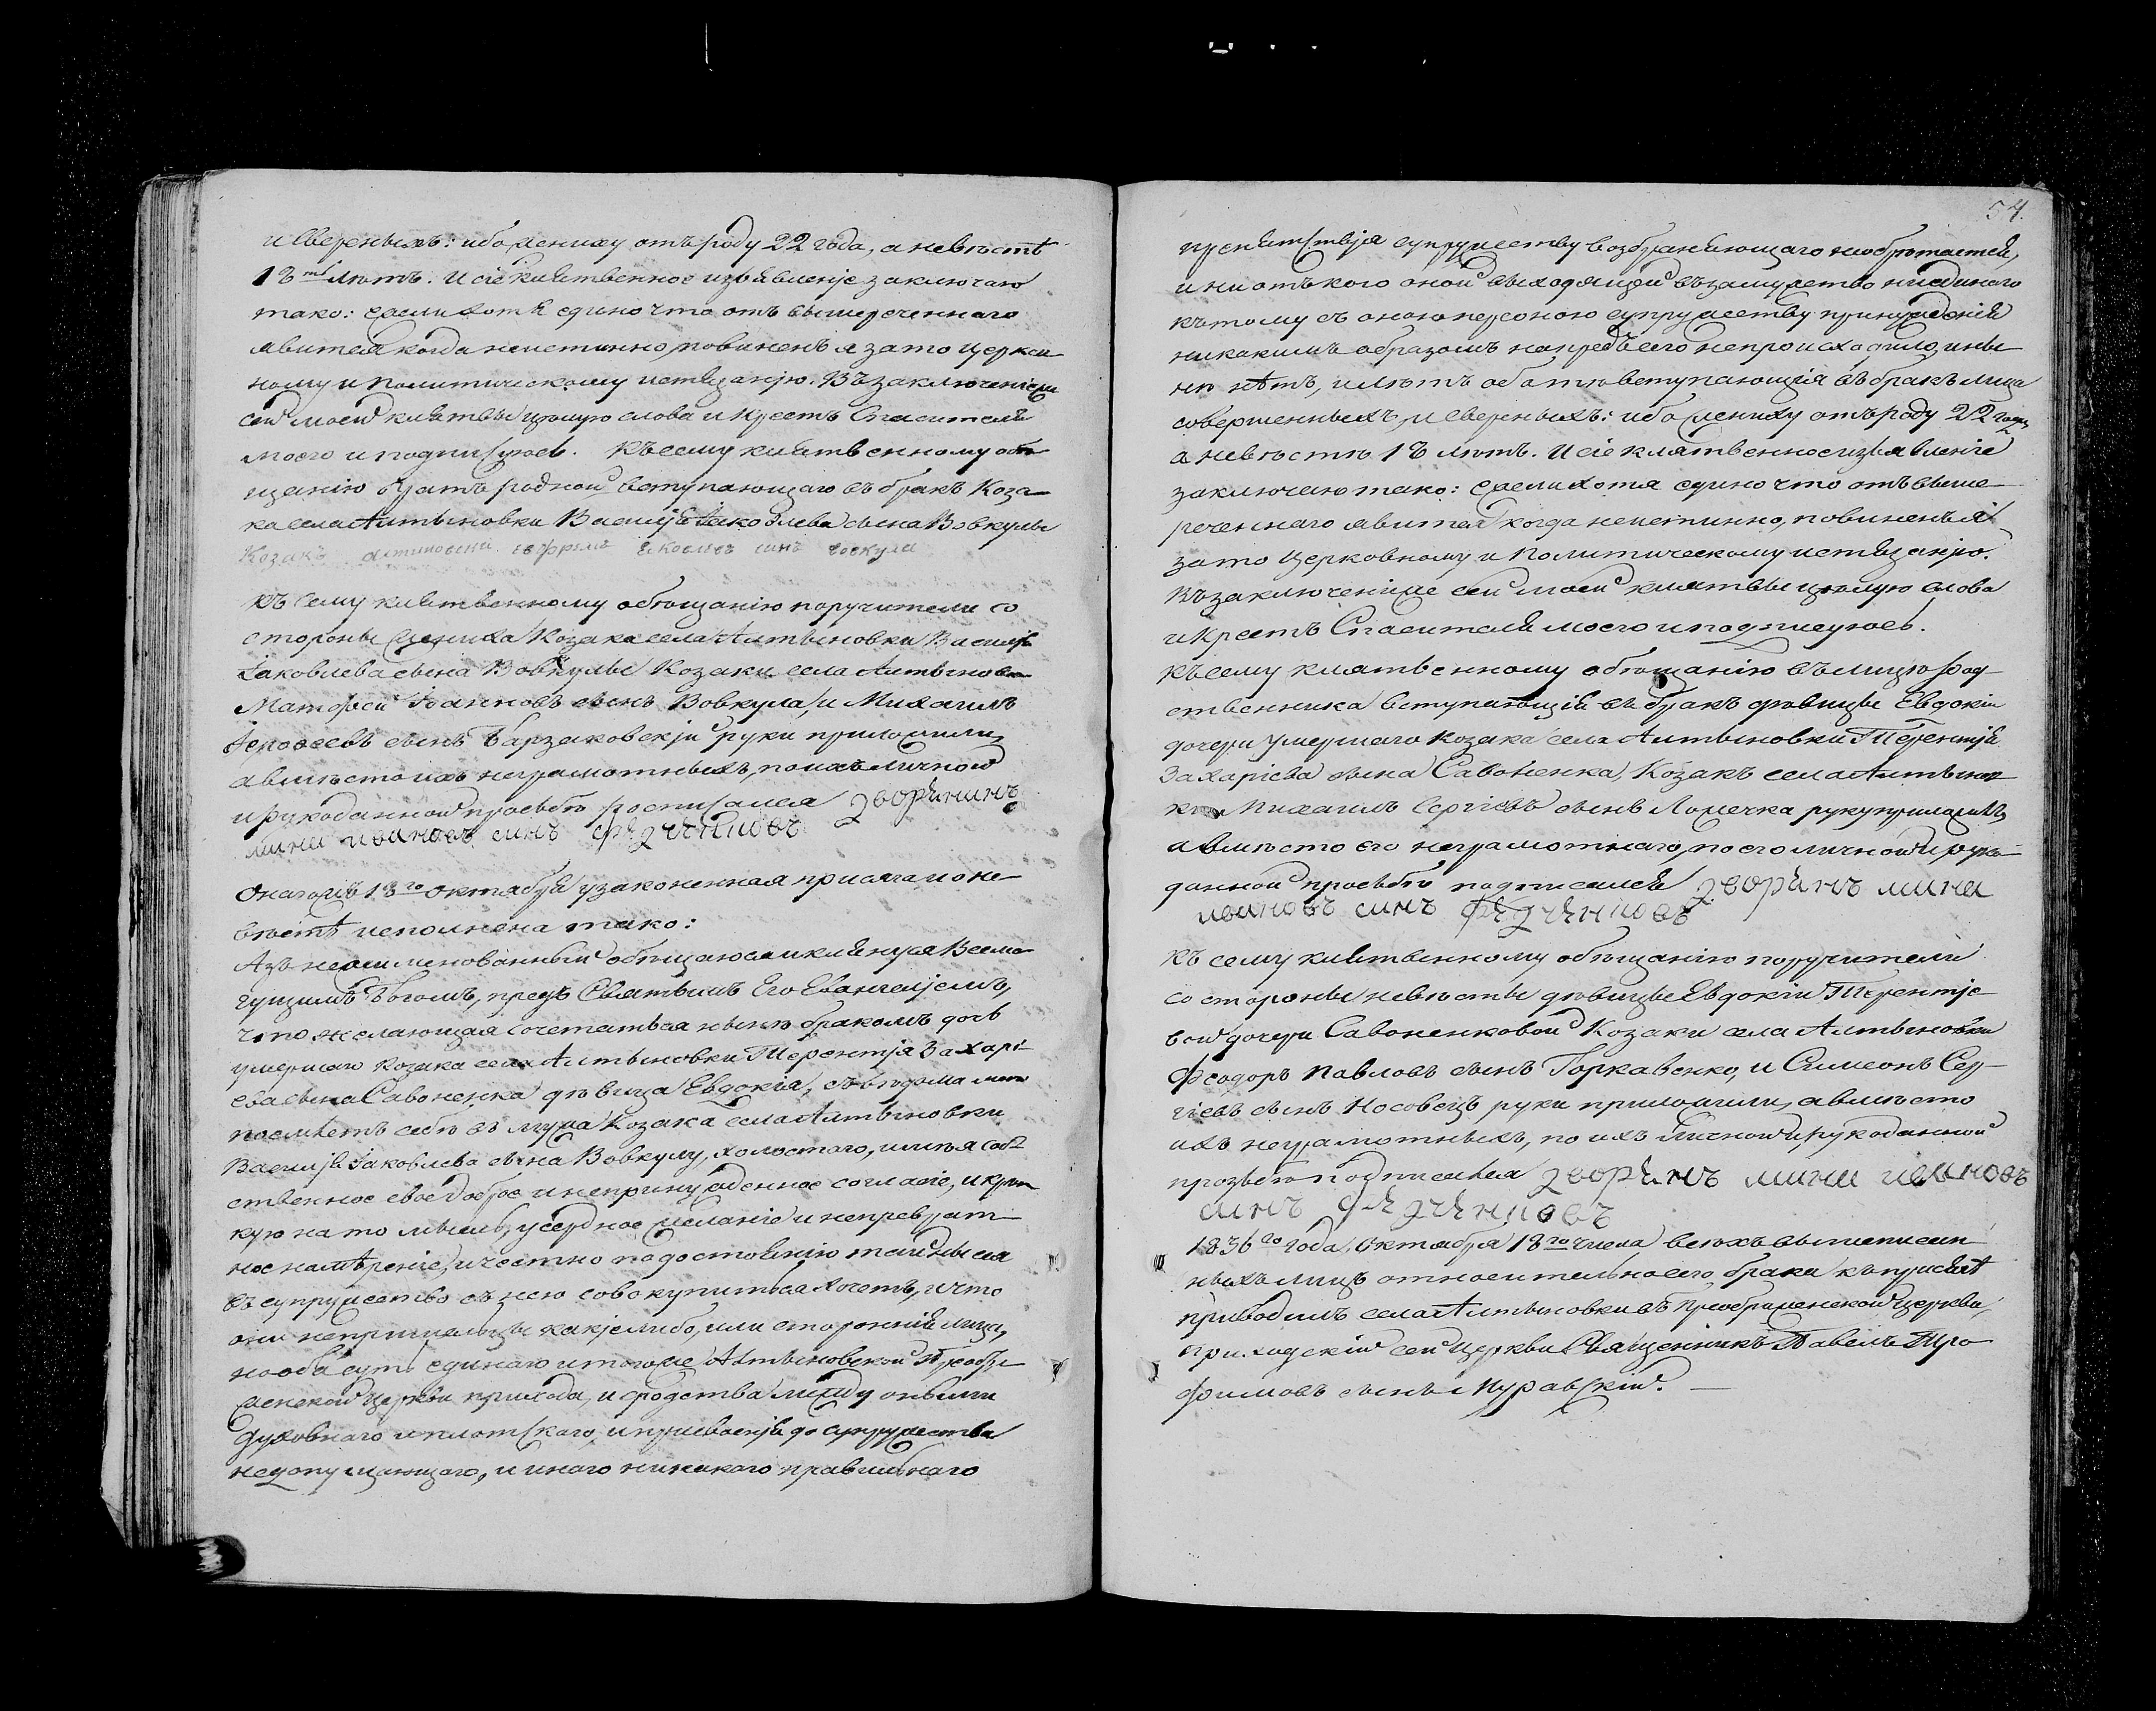 и сверныхъ: ибо жениху отъ роду 22 года, а невѣстѣ
18ть лѣтъ. И сіе клятвенное изъявленіе заключаю
тако: ежели хотя едино что отъ вышереченнаго
явится когда неистинно, повиненъ я за то церков
ному и политическому истязанію. Въ заключеніежи
сей моей клятвы цѣлую слова и Крестъ Спасителя
моего и подписуюсь. Къ сему клятвенному обѣ
щанію братъ родной вступающаго въ бракъ Коза
ка села Алтыновки Василія Іаковлева сына Вовкулы
Козакъ алтиновски ефремъ яковлевъ синъ вовкула
Къ сему клятвенному обѣщанію поручители со
стороны жениха Козака села Алтыновки Василія
Іаковлева сына Вовкулы Козаки села Алтыновки
Матѳей Іоанновъ сынъ Вовкула, и Михаилъ
сынъ Барзаковскій руки приложили,
а вмѣсто ихъ неграмотныхъ, по ихъ личной
и рукоданной прозьбѣ росписался дворянинъ
мина ивановъ синъ федченковъ
Онагожъ 18го Октября узаконенная присяга и о не
вѣстѣ исполнена тако:
Азъ нежеименованный обѣщаюся и клянуся Всемо
гущимъ Богомъ, предъ Святымъ Его Евангеліемъ,
что желающая сочетаться нынѣ бракомъ дочь
умершаго козака села Алтыновки Терентія Захарі
ева сына Савоненка дѣвица Евдокія, съ вѣдома моего
поемлетъ себѣ въ мужа Козака села Алтыновки
Василія Іаковлева сына Вовкулу, холостаго, имѣя соб
ственное свое доброе и непринужденное согласіе, и крѣп
кую на то мысль, усердное желаніе и непреврат
ное намѣреніе, и честно по достоянію тайны сея
въ супружество съ нею совокупиться хочетъ, и что
они непришельцы какіелибо, или сторонніе лица,
но оба суть единаго и тогоже Алтыновской Преобра
женской Церкви прихода, и сродства между оными
духовнаго и плотскаго, и присвоенія до супружества
недопущающаго, и инаго никакого правильнаго
54.
препятствія супружеству возбраняющаго необрѣтается,
и ни отъ кого оной выходящей въ замужество ниединаго
къ тому съ оною персоною супружеству принужденія
никакимъ образомъ напредъ сего непроисходило, и ны
нѣ нѣтъ, и лѣтъ оба то вступающія въ бракъ лица
совершенныхъ и сверныхъ: ибо жениху отъ роду 22 года,
а невѣстѣ 18 лѣтъ. И сіе клятвенное изъявленіе
заключаю тако: ежели хотя едино что отъ выше
реченнаго явится когда неистинно, повиненъ я
за то церковному и политическому истязанію.
Въ заключеніеже сей моей клятвы цѣлую слова
и Крестъ Спасителя моего и подписуюсь.
Къ сему клятвенному обѣщанію въ лицѣ род
ственника вступающія въ бракъ дѣвицы Евдокіи
дочери умершаго козака села Алтыновки Терентія
Захаріева сына Савоненка, Козакъ села Алтынов
ки Михаилъ Сергіевъ сынъ Ломечка руку приложилъ,
а вмѣсто его неграмотнаго, по его личной и руко
данной прозьбѣ подписался дворянъ мина
ивановъ синъ федченковъ
Къ сему клятвенному обѣщанію поручители
со стороны невѣсты дѣвицы Евдокіи Терентіе
вой дочери Савоненковой Козаки села Алтыновки
Ѳеодоръ Павловъ сынъ Горкавенко, и Симеонъ Сер
гіевъ сынъ Носовецъ руки приложили, а вмѣсто
ихъ неграмотныхъ, по ихъ личной и рукоданной
прозьбѣ подписался дворянъ мина ивановъ
синъ федченковъ
1836го года, Октября 18го числа всѣхъ вышеписан
ныхъ лицъ относительно сего брака къ присягѣ
приводилъ села Алтыновки въ Преображенской церкви,
приходскій сей Церкви Священникъ Павелъ Тро
фимовъ сынъ Муравскій.